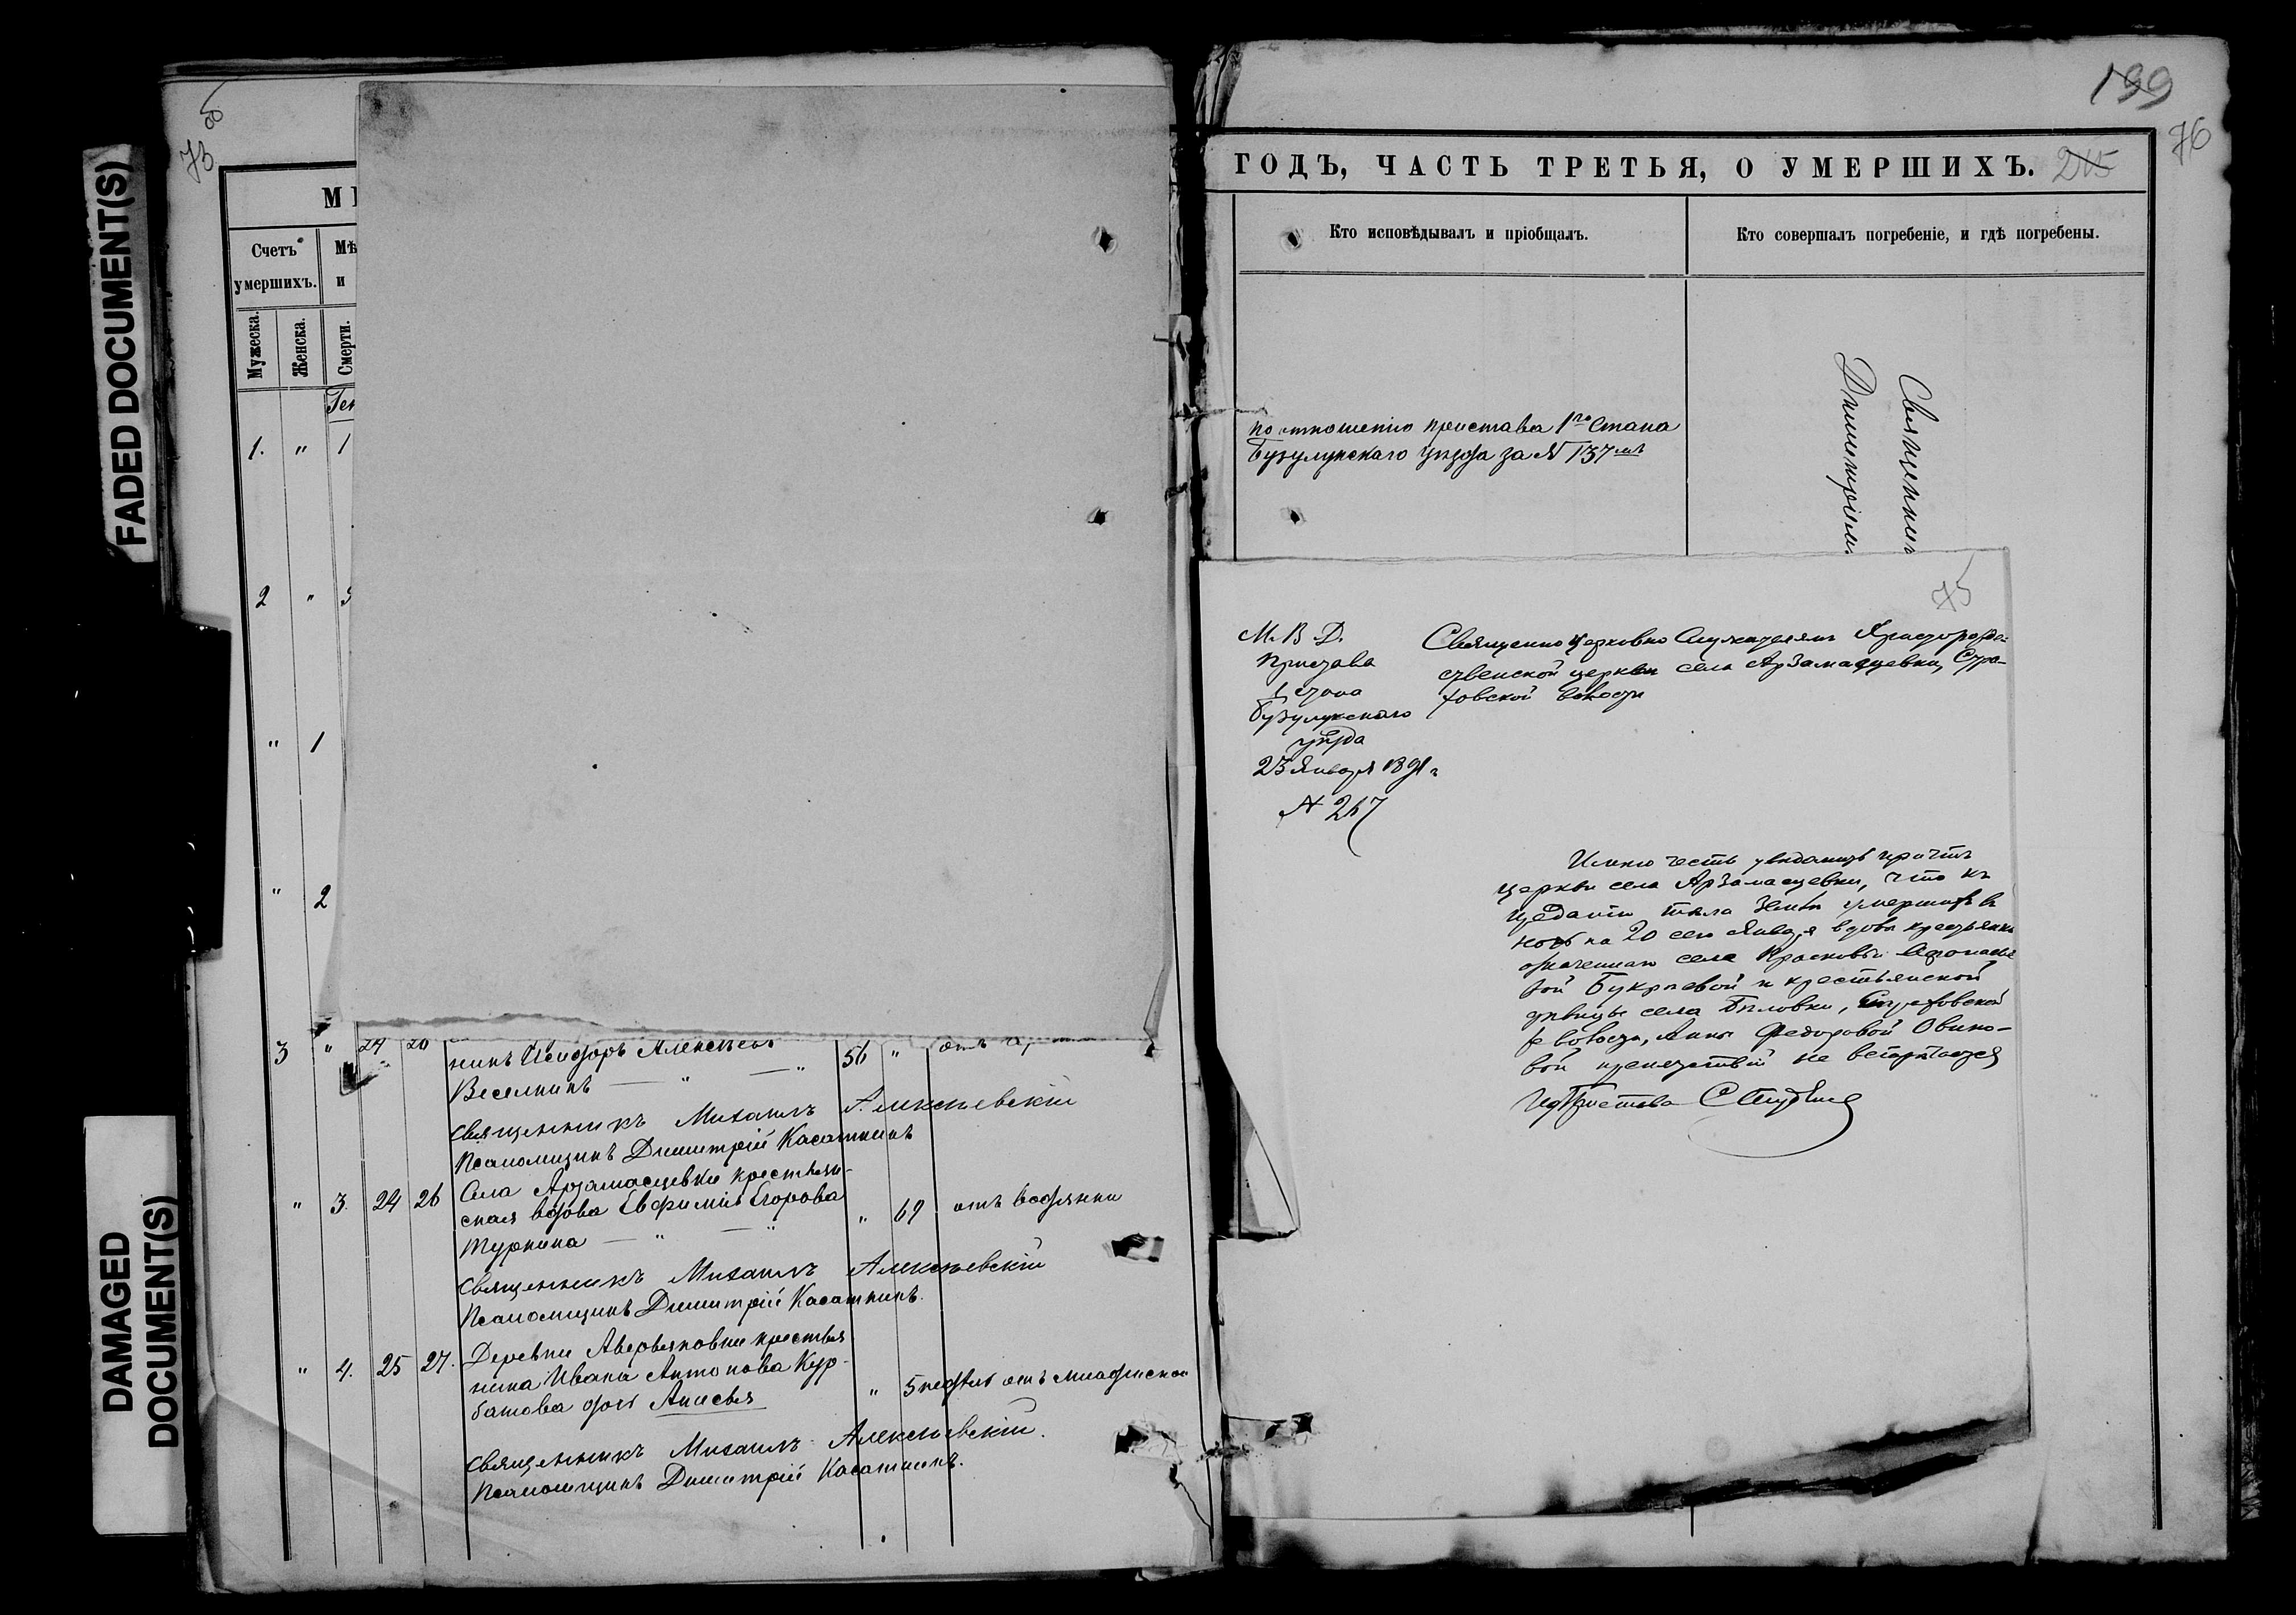 FADED DOCUMENT(S)
DAMAGED
DOCUMENT(S)
73 об
М
Счетъ
умершихъ.
Мѣ
и
Мужеска.
Женска.
Смерти.
Ген
1. " 1
2 "
" 1
" 2
3 " 24 26
нинъ Исидоръ Алексѣевъ 56 " отъ
Веселкинъ — " — "
Священникъ Михаилъ Алексѣевскій
Псаломщикъ Димитрій Касаткинъ
" 3. 24 26 Села Арзамасцевки крестьян-
ская вдова Евфимія Егорова " 69 отъ водянки
Туркина — " — "
Священникъ Михаилъ Алексѣевскій
Псаломщикъ Димитрій Касаткинъ.
" 4. 25 27. Деревни Аверьяновки крестья
нина Ивана Антонова Кур-
батова дочь Анисья " 5 недѣль отъ младенской
Священникъ Михаилъ Алексѣевскій.
Псаломщикъ Димитрій Касаткинъ.
199
76
ГОДЪ, ЧАСТЬ ТРЕТЬЯ, О УМЕРШИХЪ. 215
Кто исповѣдывалъ и пріобщалъ.
Кто совершалъ погребеніе, и гдѣ погребены.
по отношенію пристава 1го Стана
Бузулукскаго уѣзда за № 137мъ
Священник
Димитріем
75
М. В. Д.
Пристава
1 стана
Бузулукскаго
уѣзда
23 Января 1891 г
№ 267
Священно Церковно Служителямъ Христорожде-
ственской церкви села Арзамасцевки, Стра-
ховской волости
Имѣю честь увѣдомить причтъ
церкви села Арзамасцевки, что къ
преданію тѣла землѣ умершихъ въ
ночь на 20 сего Января вдовы крестьянки
означеннаго села Афонасье
вой Букаевой и крестьянской
дѣвицы села Бѣловки, Страховской
волости, Анны Федоровой Овино-
вой препятствій не встрѣчается
Пристава